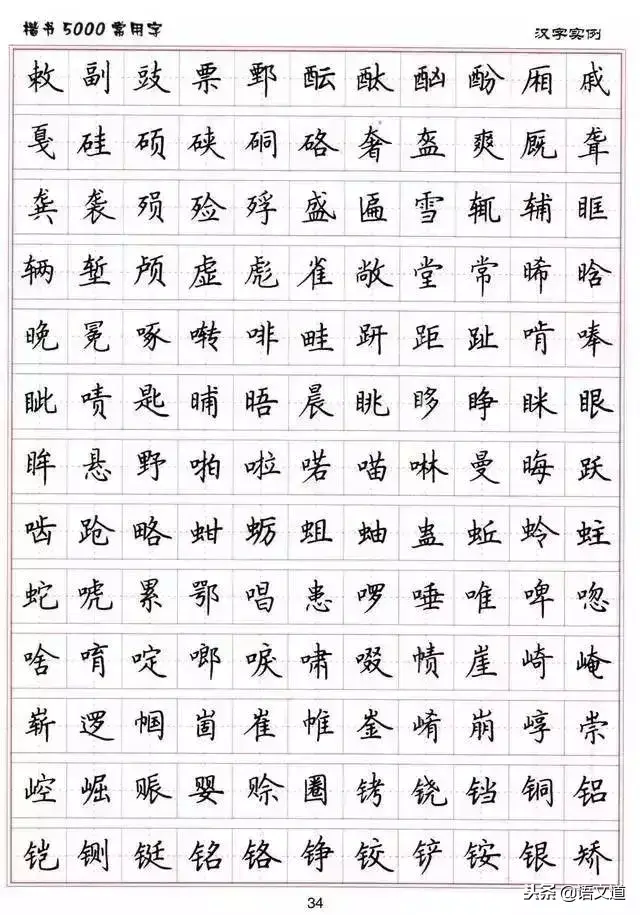 楷书5000常用字 汉字实例
敕 副 豉 票 鄄 酝 酞 酗 酚 厢 戚
戛 硅 硕 硖 硐 硌 奢 盔 爽 厩 聋
龚 袭 殒 殓 殍 盛 匾 雪 辄 辅 眶
辆 堑 颅 虚 彪 雀 敞 堂 常 晞 晗
晚 冕 啄 啭 啡 畦 趼 距 趾 啃 唪
眦 啧 匙 晡 晤 晨 眺 眵 睁 眯 眼
眸 悬 野 啪 啦 喏 喵 啉 曼 晦 跃
啮 跄 略 蚶 蛎 蛆 蚰 蛊 蚯 蛉 蛀
蛇 唬 累 鄂 唱 患 啰 唾 唯 啤 唿
啥 唷 啶 啷 唳 啸 啜 帻 崖 崎 崦
崭 逻 帼 崮 崔 帷 崟 崤 崩 崞 崇
崆 崛 赈 婴 赊 圈 铐 铙 铛 铜 铝
铠 铡 铤 铭 铬 铮 铰 铲 铵 银 矫
34
头条 @语文道